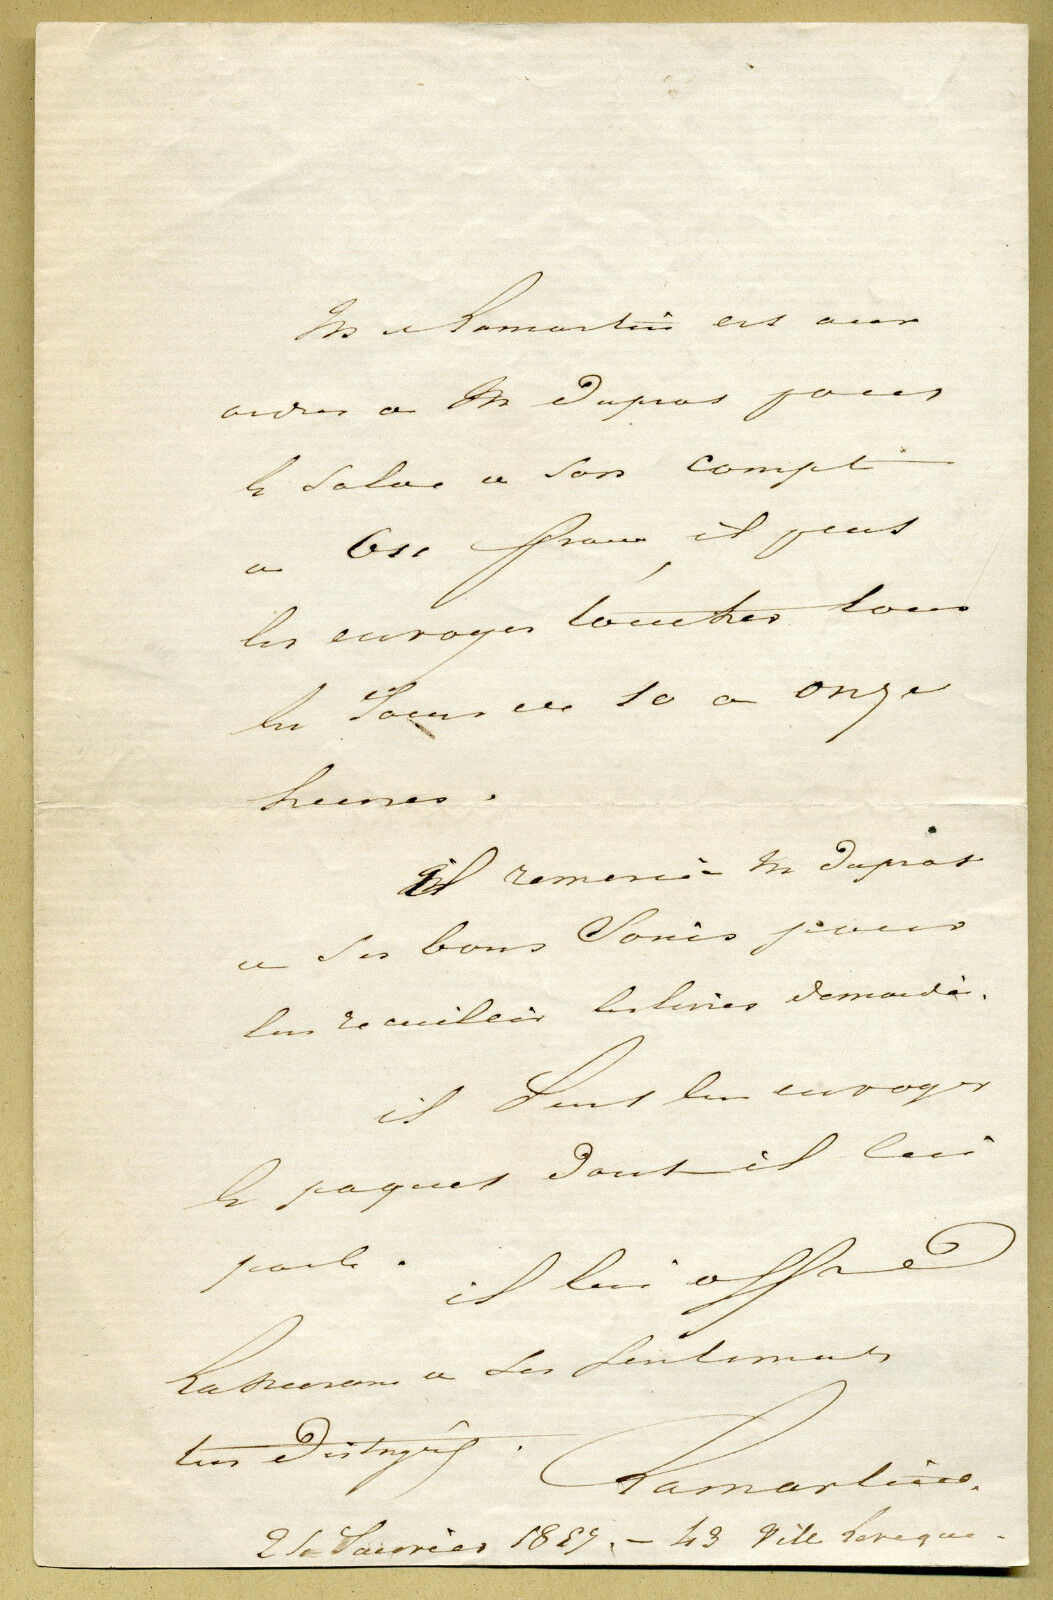 M de Lamartine est aux
ordres de M Duprat pour
le solde de son compte
de francs, il peut
les envoyer toucher tous
les jours de 10 a onze
heures.
il remercie M Duprat
de ses bons soins pour
recueillir les livres demandés.
il peut envoyer
le paquet dont il lui
parle. il lui offre
de ses sentiments
tres distingués.
Lamartine.
Janvier 1857. – 43 Ville Leveque.